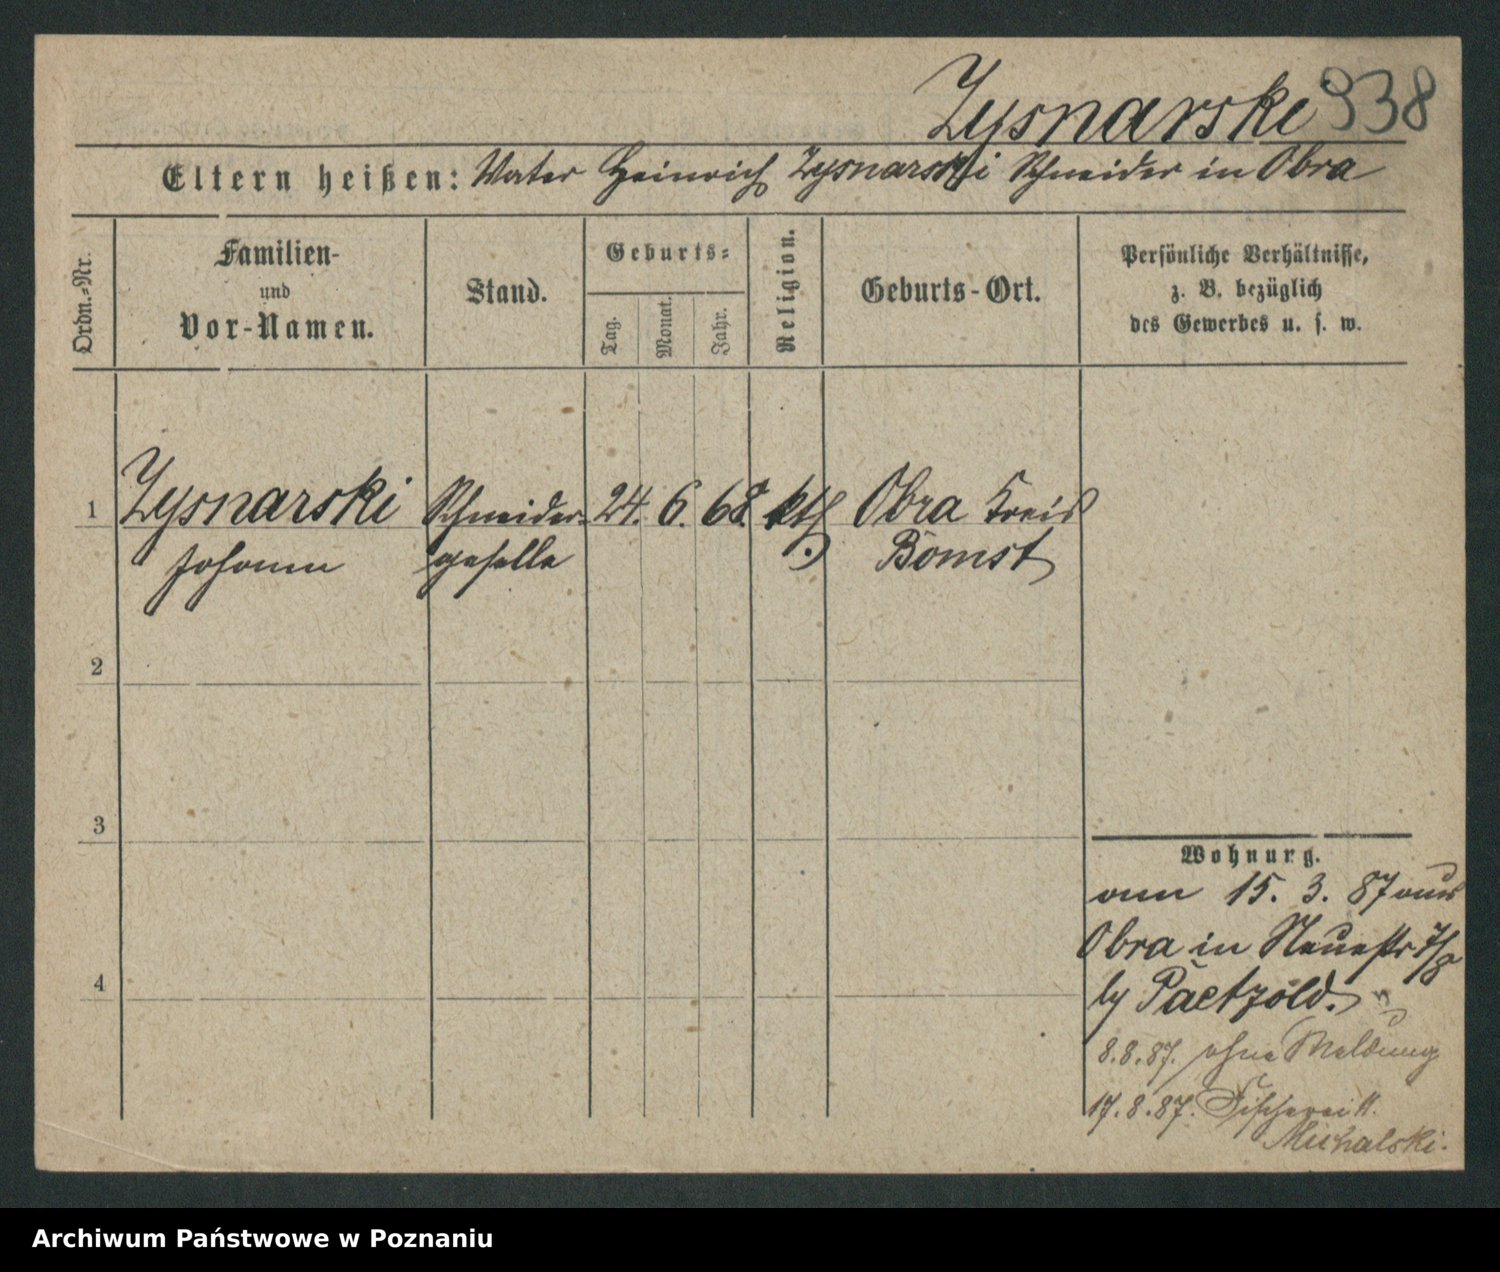 Zysnarski 938
Eltern heißen: Vater Heinrich Zysnarski Schneider in Obra
Ordn.-Nr.
Familien-
und
Vor-Namen.
Stand.
Geburts-
Tag.
Monat.
Jahr.
Religion.
Geburts-Ort.
Persönliche Verhältnisse,
z. B. bezüglich
des Gewerbes u. s. w.
1 Zysnarski Schneider- 24. 6. 68. kth. Obra Kreis
Johann geselle Bomst
2
3
4
Wohnung.
am 15. 3. 87 aus
Obra in Neuestr 7/8
by Paetzold.
8.8.87. ohne Meldung
17.8.87. Fischerei 11.
Michalski.
Archiwum Państwowe w Poznaniu